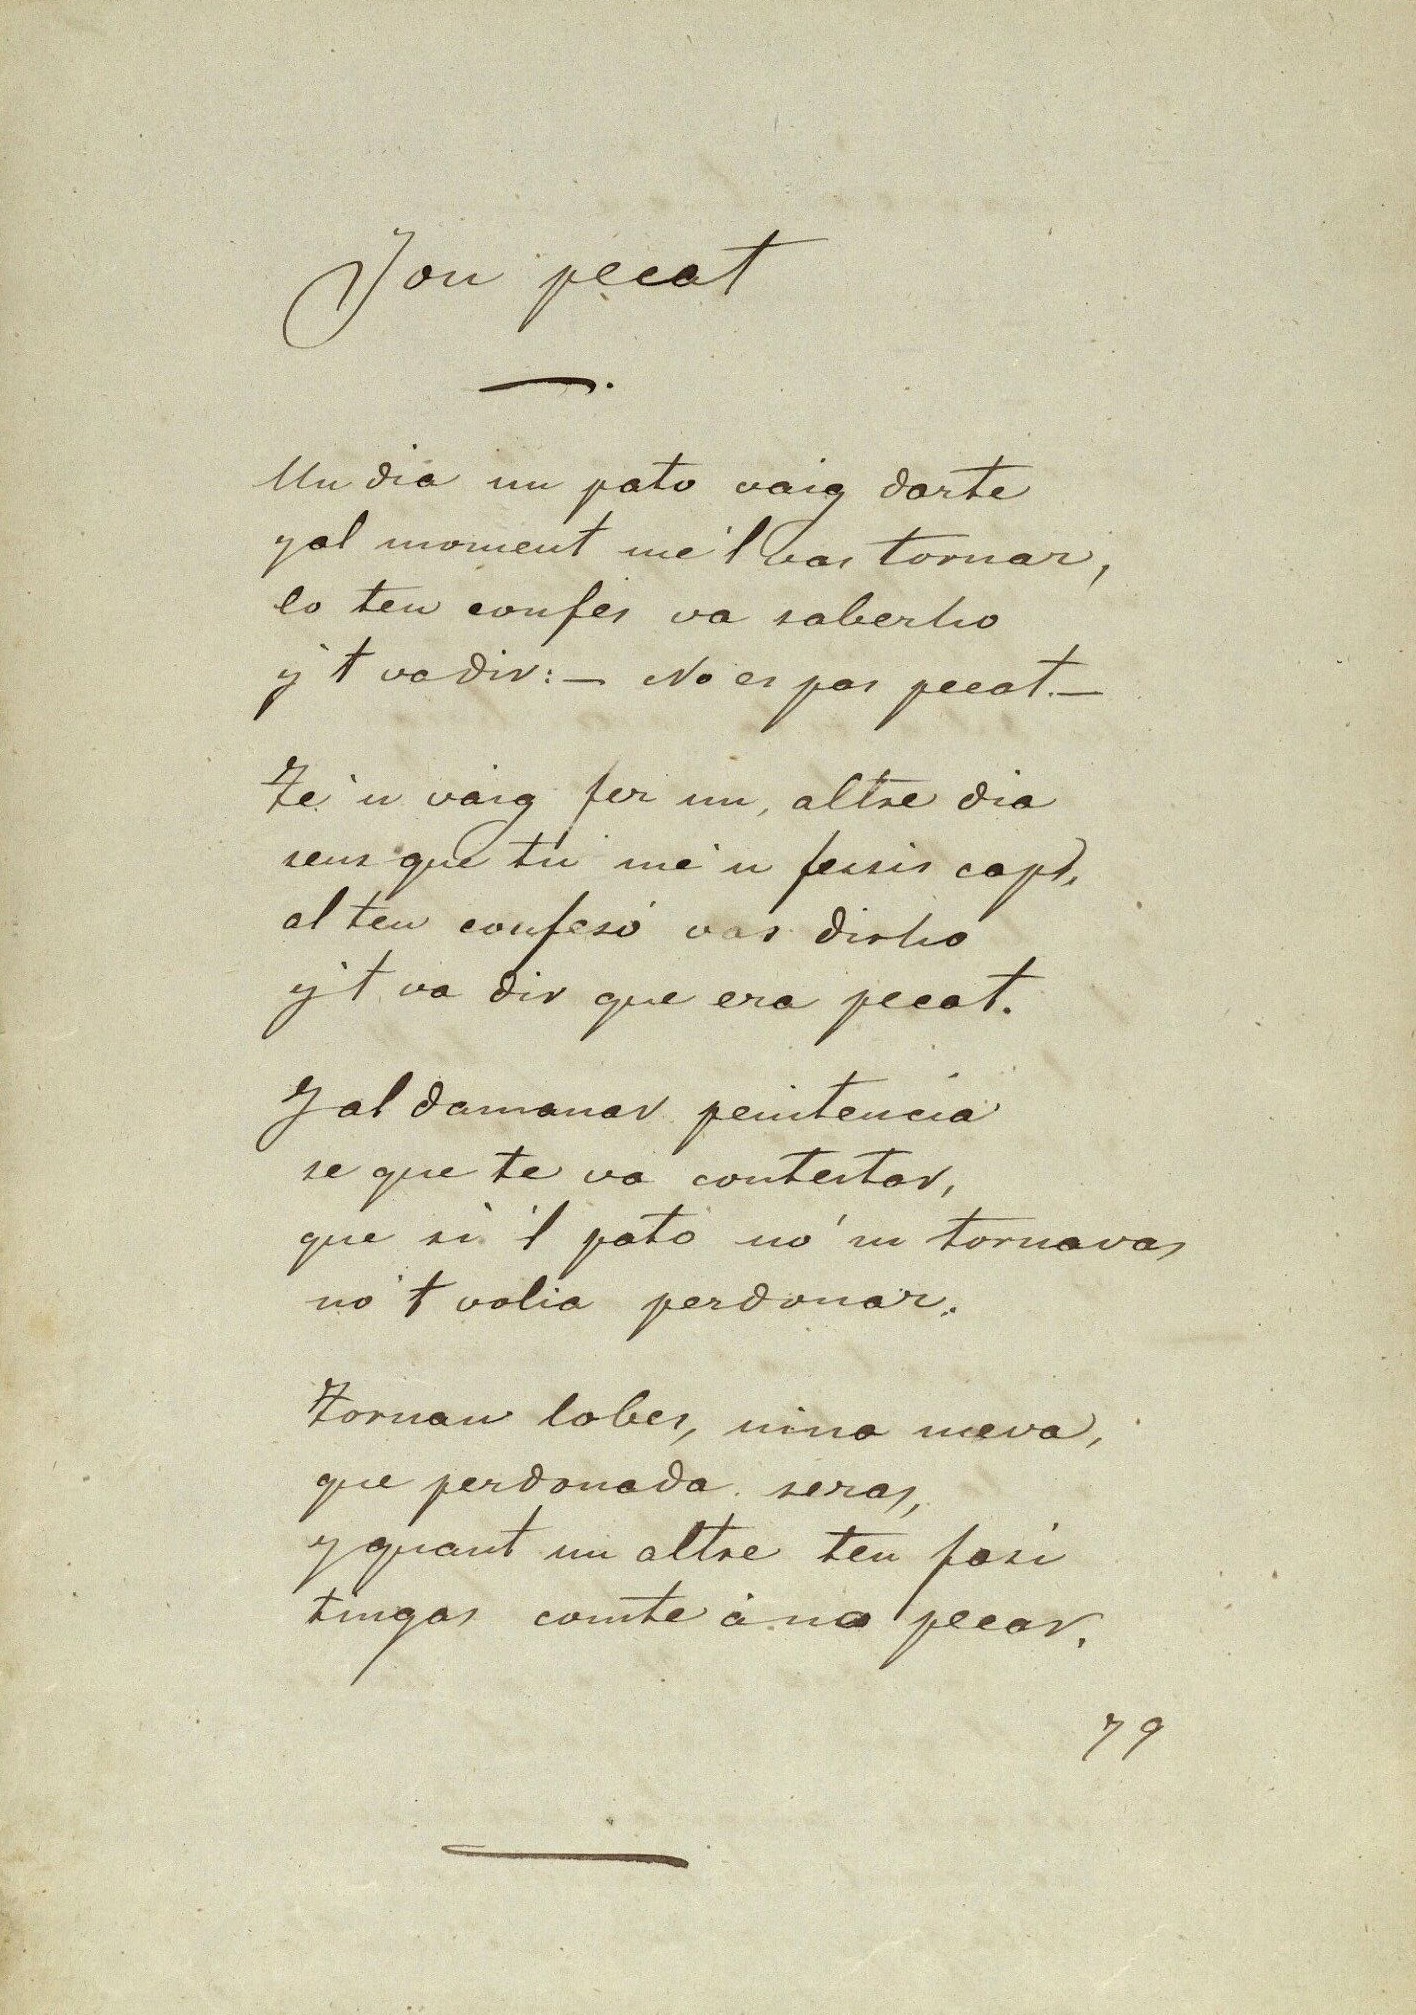 Jou pecat
Un dia un pato vaig darte
y al moment me'l vas tornar,
lo teu confés va saberho
y't va dir: — No es pas pecat. —
Te'n vaig fer un, altre dia
sens que tu me'n fessis cap,
al teu confesó vas dirho
y't va dir que era pecat.
Y al damanar penitencia
se que te va contestar,
que si'l pato no'm tornavas
no't volia perdonar.
Tornan lobes, nina meva,
que perdonada seras,
y quant un altre ten fasi
tingas comte á no pecar.
79